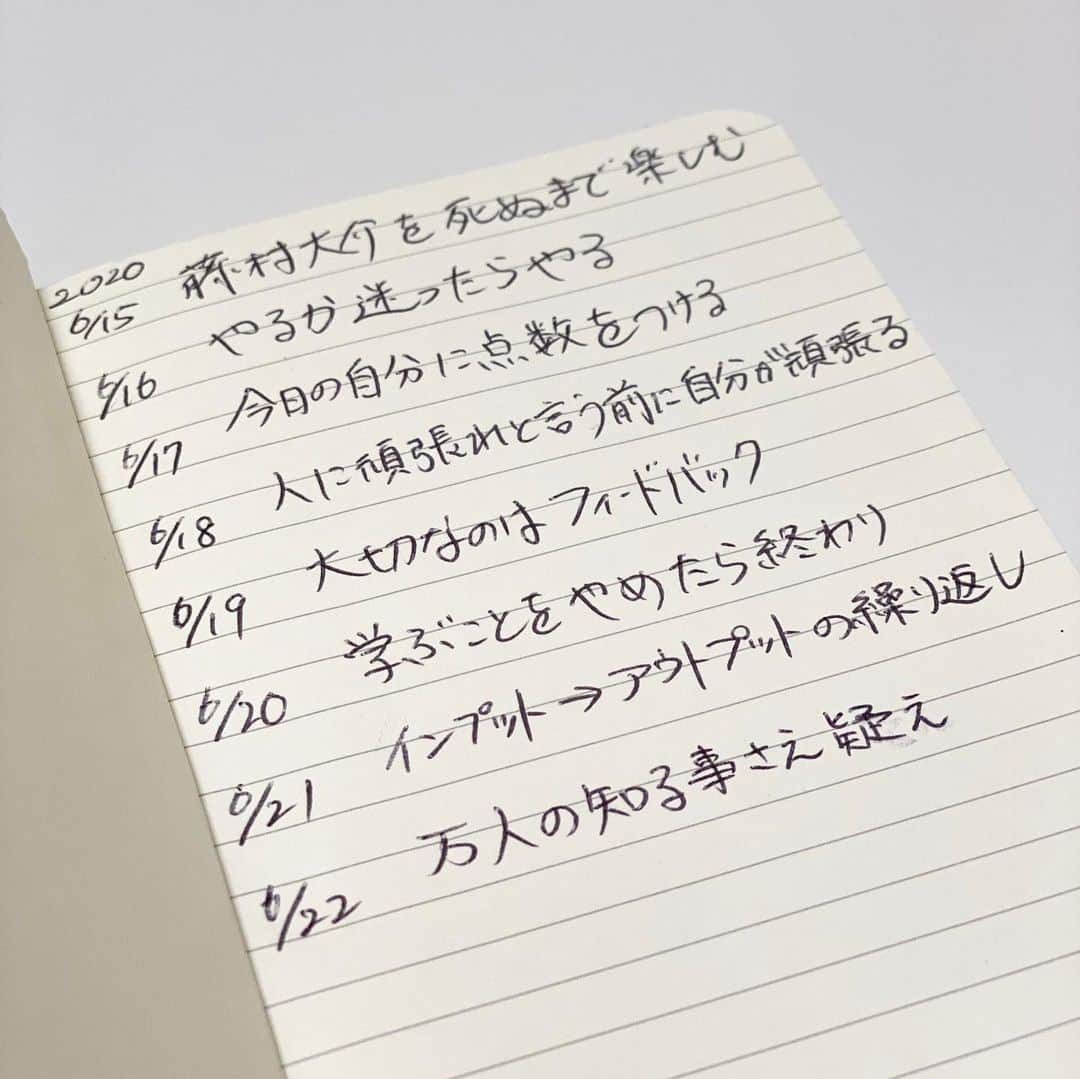 2020
6/15 藤村大介を死ぬまで楽しむ
6/16 やるか迷ったらやる
6/17 今日の自分に点数をつける
6/18 人に頑張れと言う前に自分が頑張る
6/19 大切なのはフィードバック
6/20 学ぶことをやめたら終わり
6/21 インプット→アウトプットの繰り返し
6/22 万人の知る事さえ疑え